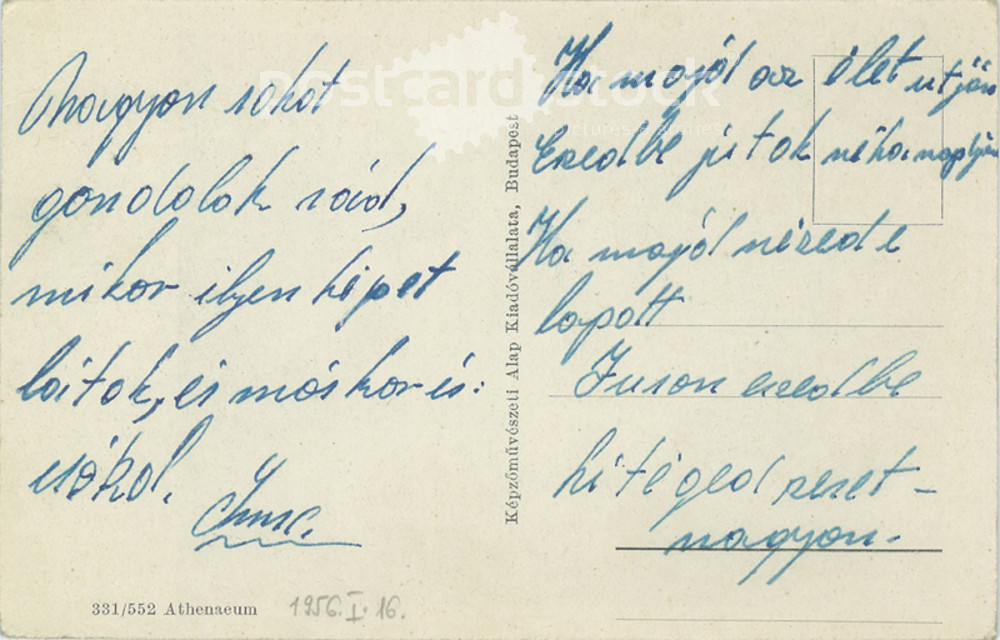 Nagyon sokat
gondolok rád,
mikor ilyen képet
látok, és máskor is:
csókol.
Ha majd az élet utján
Eszedbe jutok néha napján
Ha majd nézed e
lapott
Jusson eszedbe
ki téged szeret-
nagyon.
Képzőművészeti Alap Kiadóvállalata, Budapest
331/552 Athenaeum
1956. I. 16.
postcard stock